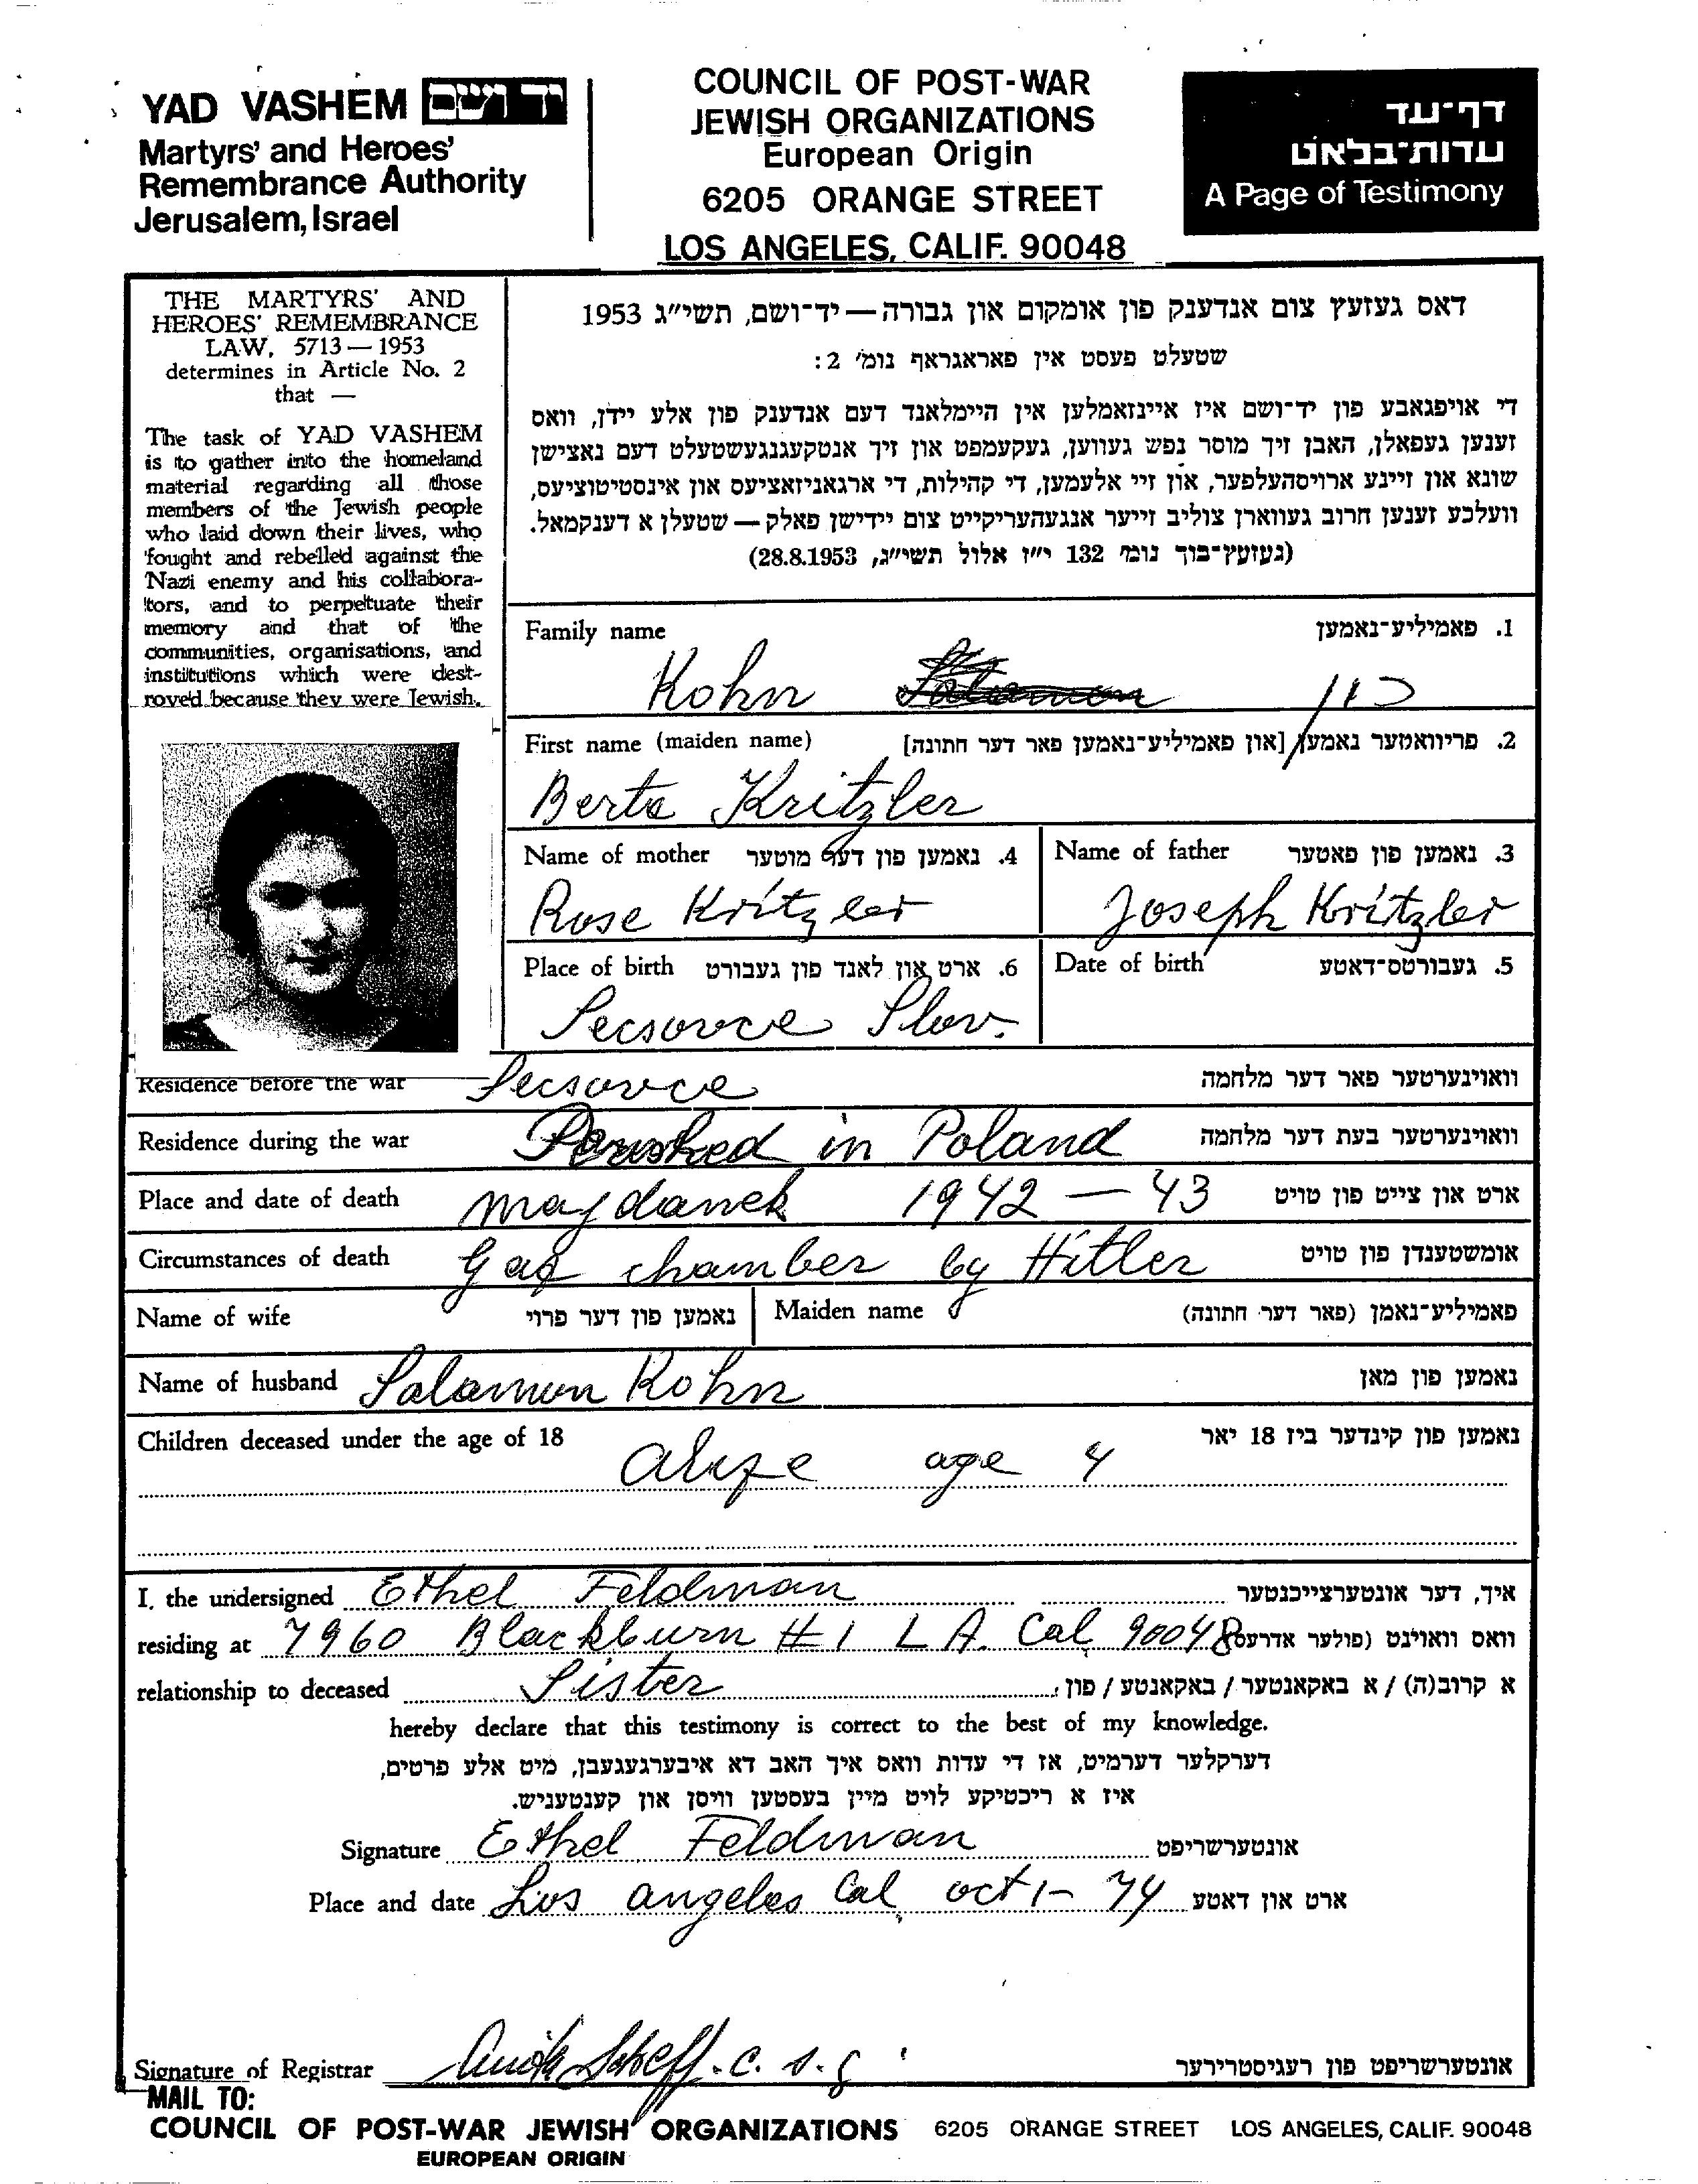 YAD VASHEM יד ושם
Martyrs' and Heroes'
Remembrance Authority
Jerusalem, Israel
COUNCIL OF POST-WAR
JEWISH ORGANIZATIONS
European Origin
6205 ORANGE STREET
LOS ANGELES, CALIF. 90048
דף-עד
עדות-בלאט
A Page of Testimony
THE MARTYRS' AND
HEROES' REMEMBRANCE
LAW, 5713 — 1953
determines in Article No. 2
that —
The task of YAD VASHEM
is to gather into the homeland
material regarding all those
members of the Jewish people
who laid down their lives, who
fought and rebelled against the
Nazi enemy and his collabora-
tors, and to perpetuate their
memory and that of the
communities, organisations, and
institutions which were dest-
royed because they were Jewish.
דאס געזעץ צום אנדענק פון אומקום און גבורה — יד-ושם, תשי"ג 1953
שטעלט פעסט אין פאראגראף נומ' 2:
די אויפגאבע פון יד-ושם איז איינזאמלען אין היימלאנד דעם אנדענק פון אלע יידן, וואס
זענען געפאלן, האבן זיך מוסר נפש געווען, געקעמפט און זיך אנטקעגנגעשטעלט דעם נאצישן
שונא און זיינע ארויסהעלפער, און זיי אלעמען, די קהילות, די ארגאניזאציעס און אינסטיטוציעס,
וועלכע זענען חרוב געווארן צוליב זייער אנגעהעריקייט צום יידישן פאלק — שטעלן א דענקמאל.
(געזעץ-בוך נומ' 132 י"ז אלול תשי"ג, 28.8.1953)
Family name 1. פאמיליע-נאמען
Kohn כהן
First name (maiden name) 2. פריוואטער נאמען [און פאמיליע-נאמען פאר דער חתונה]
Berta Kritzler
Name of mother 4. נאמען פון דער מוטער Name of father 3. נאמען פון פאטער
Rose Kritzler Joseph Kritzler
Place of birth 6. ארט און לאנד פון געבורט Date of birth 5. געבורטס-דאטע
Secsovce Slov.
Residence before the war Secsovce וואוינערטער פאר דער מלחמה
Residence during the war Perished in Poland וואוינערטער בעת דער מלחמה
Place and date of death Majdanek 1942 — 43 ארט און צייט פון טויט
Circumstances of death Gas chamber by Hitler אומשטענדן פון טויט
Name of wife נאמען פון דער פרוי Maiden name פאמיליע-נאמן (פאר דער חתונה)
Name of husband Salamon Kohn נאמען פון מאן
Children deceased under the age of 18 נאמען פון קינדער ביז 18 יאר
age 4
I, the undersigned Ethel Feldman איך, דער אונטערצייכנטער
residing at 7960 Blackburn # 1 L A. Cal. 90048 וואס וואוינט (פולער אדרעס)
relationship to deceased Sister א קרוב(ה) / א באקאנטער / באקאנטע / פון
hereby declare that this testimony is correct to the best of my knowledge.
דערקלער דערמיט, אז די עדות וואס איך האב דא איבערגעגעבן, מיט אלע פרטים,
איז א ריכטיקע לויט מיין בעסטען וויסן און קענטעניש.
Signature Ethel Feldman אונטערשריפט
Place and date Los Angeles Cal. oct 1- 74 ארט און דאטע
Signature of Registrar אונטערשריפט פון רעגיסטרירער
MAIL TO:
COUNCIL OF POST-WAR JEWISH ORGANIZATIONS 6205 ORANGE STREET LOS ANGELES, CALIF. 90048
EUROPEAN ORIGIN